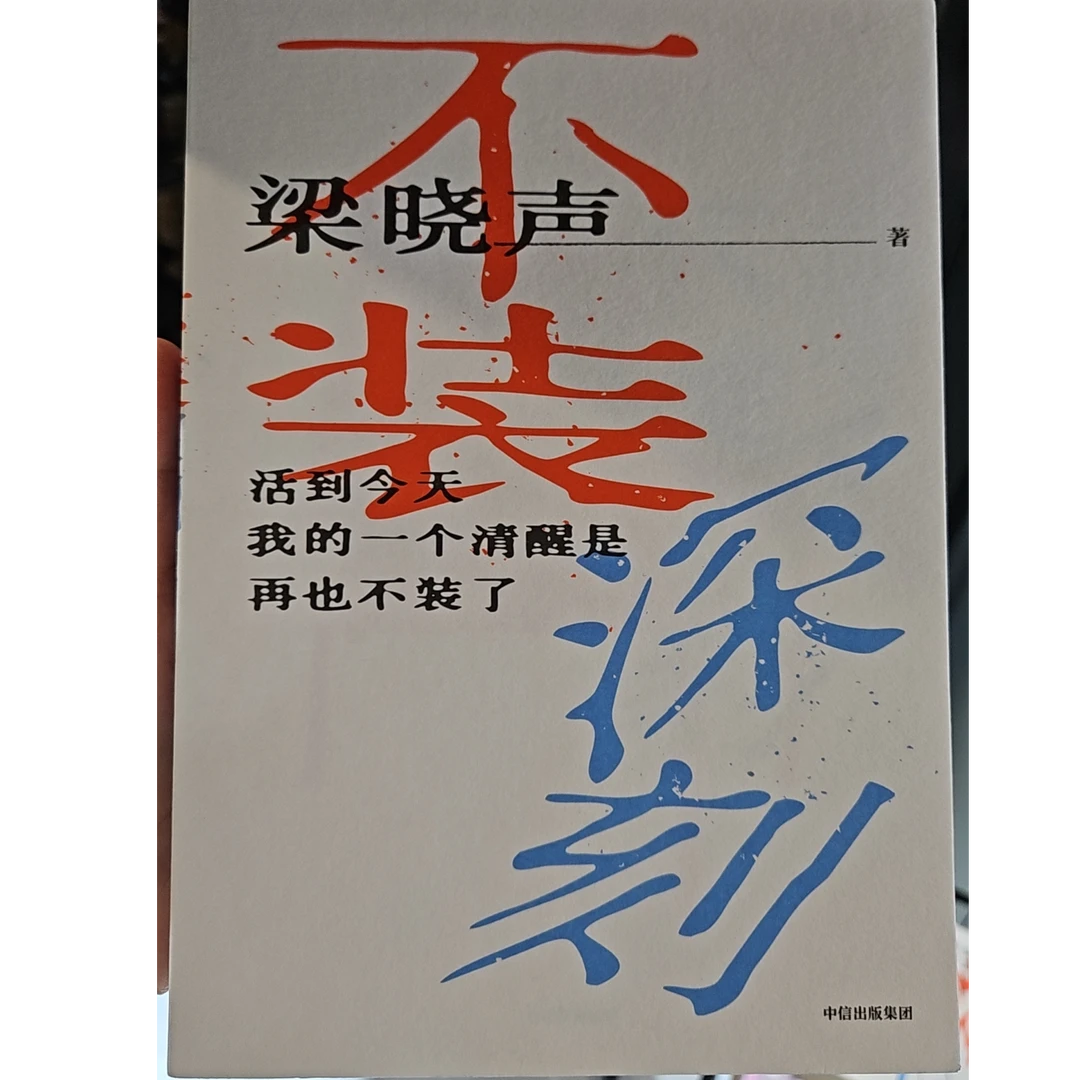 不装
深刻
梁晓声 著
活到今天
我的一个清醒是
再也不装了
中信出版集团